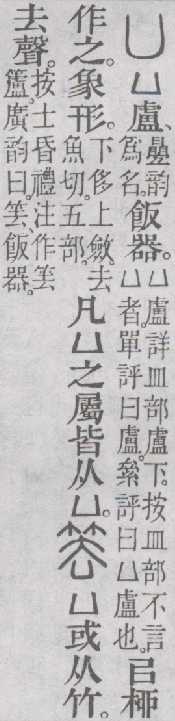 凵凵盧、疊韵爲名。飯器。凵盧詳皿部盧下。按皿部不言凵者。單評曰盧。絫評曰凵盧也。㠯柳
作之。象形。下侈上斂。去魚切。五部。凡凵之屬皆从凵。𥬔凵或从竹。
去聲。按士昏禮注作𥬔籚。廣韵曰。𥬔、飯器。